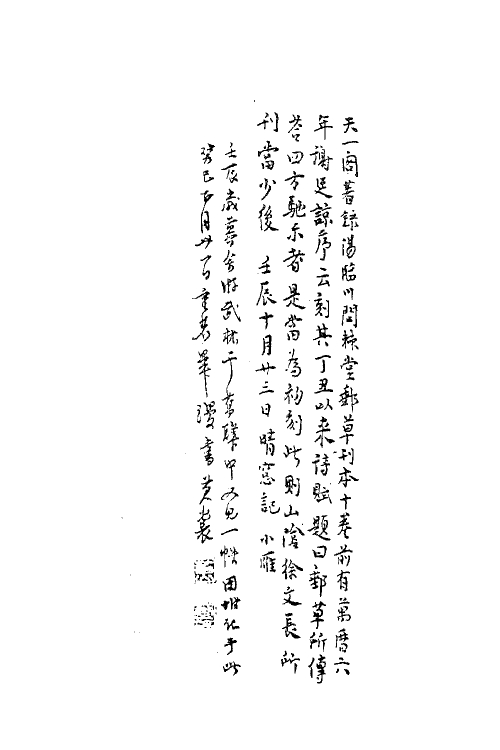 天一閣著錄湯臨川問棘堂郵草刊本十卷前有萬曆六
年謝廷諒序云刻其丁丑以來詩賦題曰郵草所傳
荅四方馳示者是當為初刻此則山陰徐文長所
刊當少後 壬辰十月廿三日晴窓記 小雁
壬辰歲暮余游武林于書肆中又見一帙因坿記于此
癸巳 月廿一日重裝畢漫書 黃裳